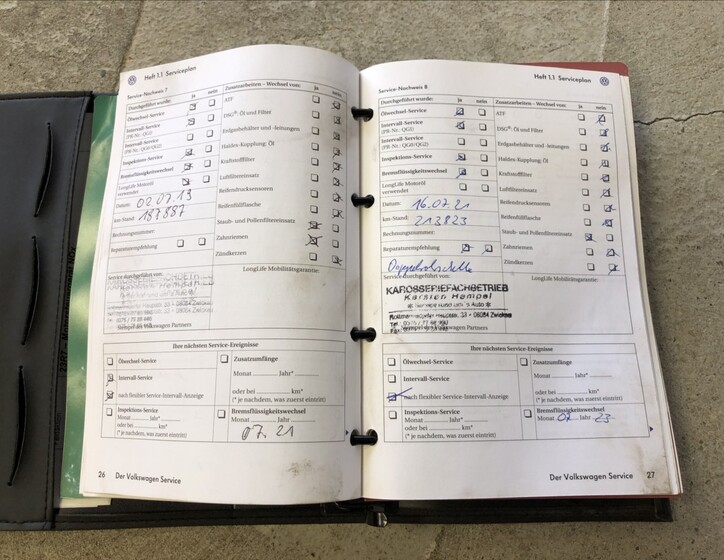 Heft 1.1 Serviceplan
Service-Nachweis 7
Durchgeführt wurde: ja nein
Ölwechsel-Service
Intervall-Service
(PR-Nr.: QG1)
Intervall-Service
(PR-Nr.: QG0/QG2)
Inspektions-Service
Bremsflüssigkeitswechsel
LongLife Motoröl
verwendet
Datum: 02.07.19
km-Stand: 187887
Rechnungsnummer:
Reparaturempfehlung
Service durchgeführt von:
Stempel des Volkswagen Partners
Zusatzarbeiten – Wechsel von: ja nein
ATF
DSG®: Öl und Filter
Erdgasbehälter und -leitungen
Haldex-Kupplung: Öl
Kraftstofffilter
Luftfiltereinsatz
Reifendrucksensoren
Reifenfüllflasche
Staub- und Pollenfiltereinsatz
Zahnriemen
Zündkerzen
LongLife Mobilitätsgarantie:
Ihre nächsten Service-Ereignisse
Ölwechsel-Service
Intervall-Service
nach flexibler Service-Intervall-Anzeige
Inspektions-Service
Monat Jahr*
oder bei km*
(* je nachdem, was zuerst eintritt)
Zusatzumfänge
Monat Jahr*
oder bei km*
(* je nachdem, was zuerst eintritt)
Bremsflüssigkeitswechsel
Monat Jahr
07 21
26 Der Volkswagen Service
Heft 1.1 Serviceplan
Service-Nachweis 8
Durchgeführt wurde: ja nein
Ölwechsel-Service
Intervall-Service
(PR-Nr.: QG1)
Intervall-Service
(PR-Nr.: QG0/QG2)
Inspektions-Service
Bremsflüssigkeitswechsel
LongLife Motoröl
verwendet
Datum: 16.07.21
km-Stand: 213823
Rechnungsnummer:
Reparaturempfehlung
Service durchgeführt von:
KAROSSERIEFACHBETRIEB
Karsten Hempel
08064 Zwickau
Stempel des Volkswagen Partners
Zusatzarbeiten – Wechsel von: ja nein
ATF
DSG®: Öl und Filter
Erdgasbehälter und -leitungen
Haldex-Kupplung: Öl
Kraftstofffilter
Luftfiltereinsatz
Reifendrucksensoren
Reifenfüllflasche
Staub- und Pollenfiltereinsatz
Zahnriemen
Zündkerzen
LongLife Mobilitätsgarantie:
Ihre nächsten Service-Ereignisse
Ölwechsel-Service
Intervall-Service
nach flexibler Service-Intervall-Anzeige
Inspektions-Service
Monat Jahr*
oder bei km*
(* je nachdem, was zuerst eintritt)
Zusatzumfänge
Monat Jahr*
oder bei km*
(* je nachdem, was zuerst eintritt)
Bremsflüssigkeitswechsel
Monat 07 Jahr 23
Der Volkswagen Service 27